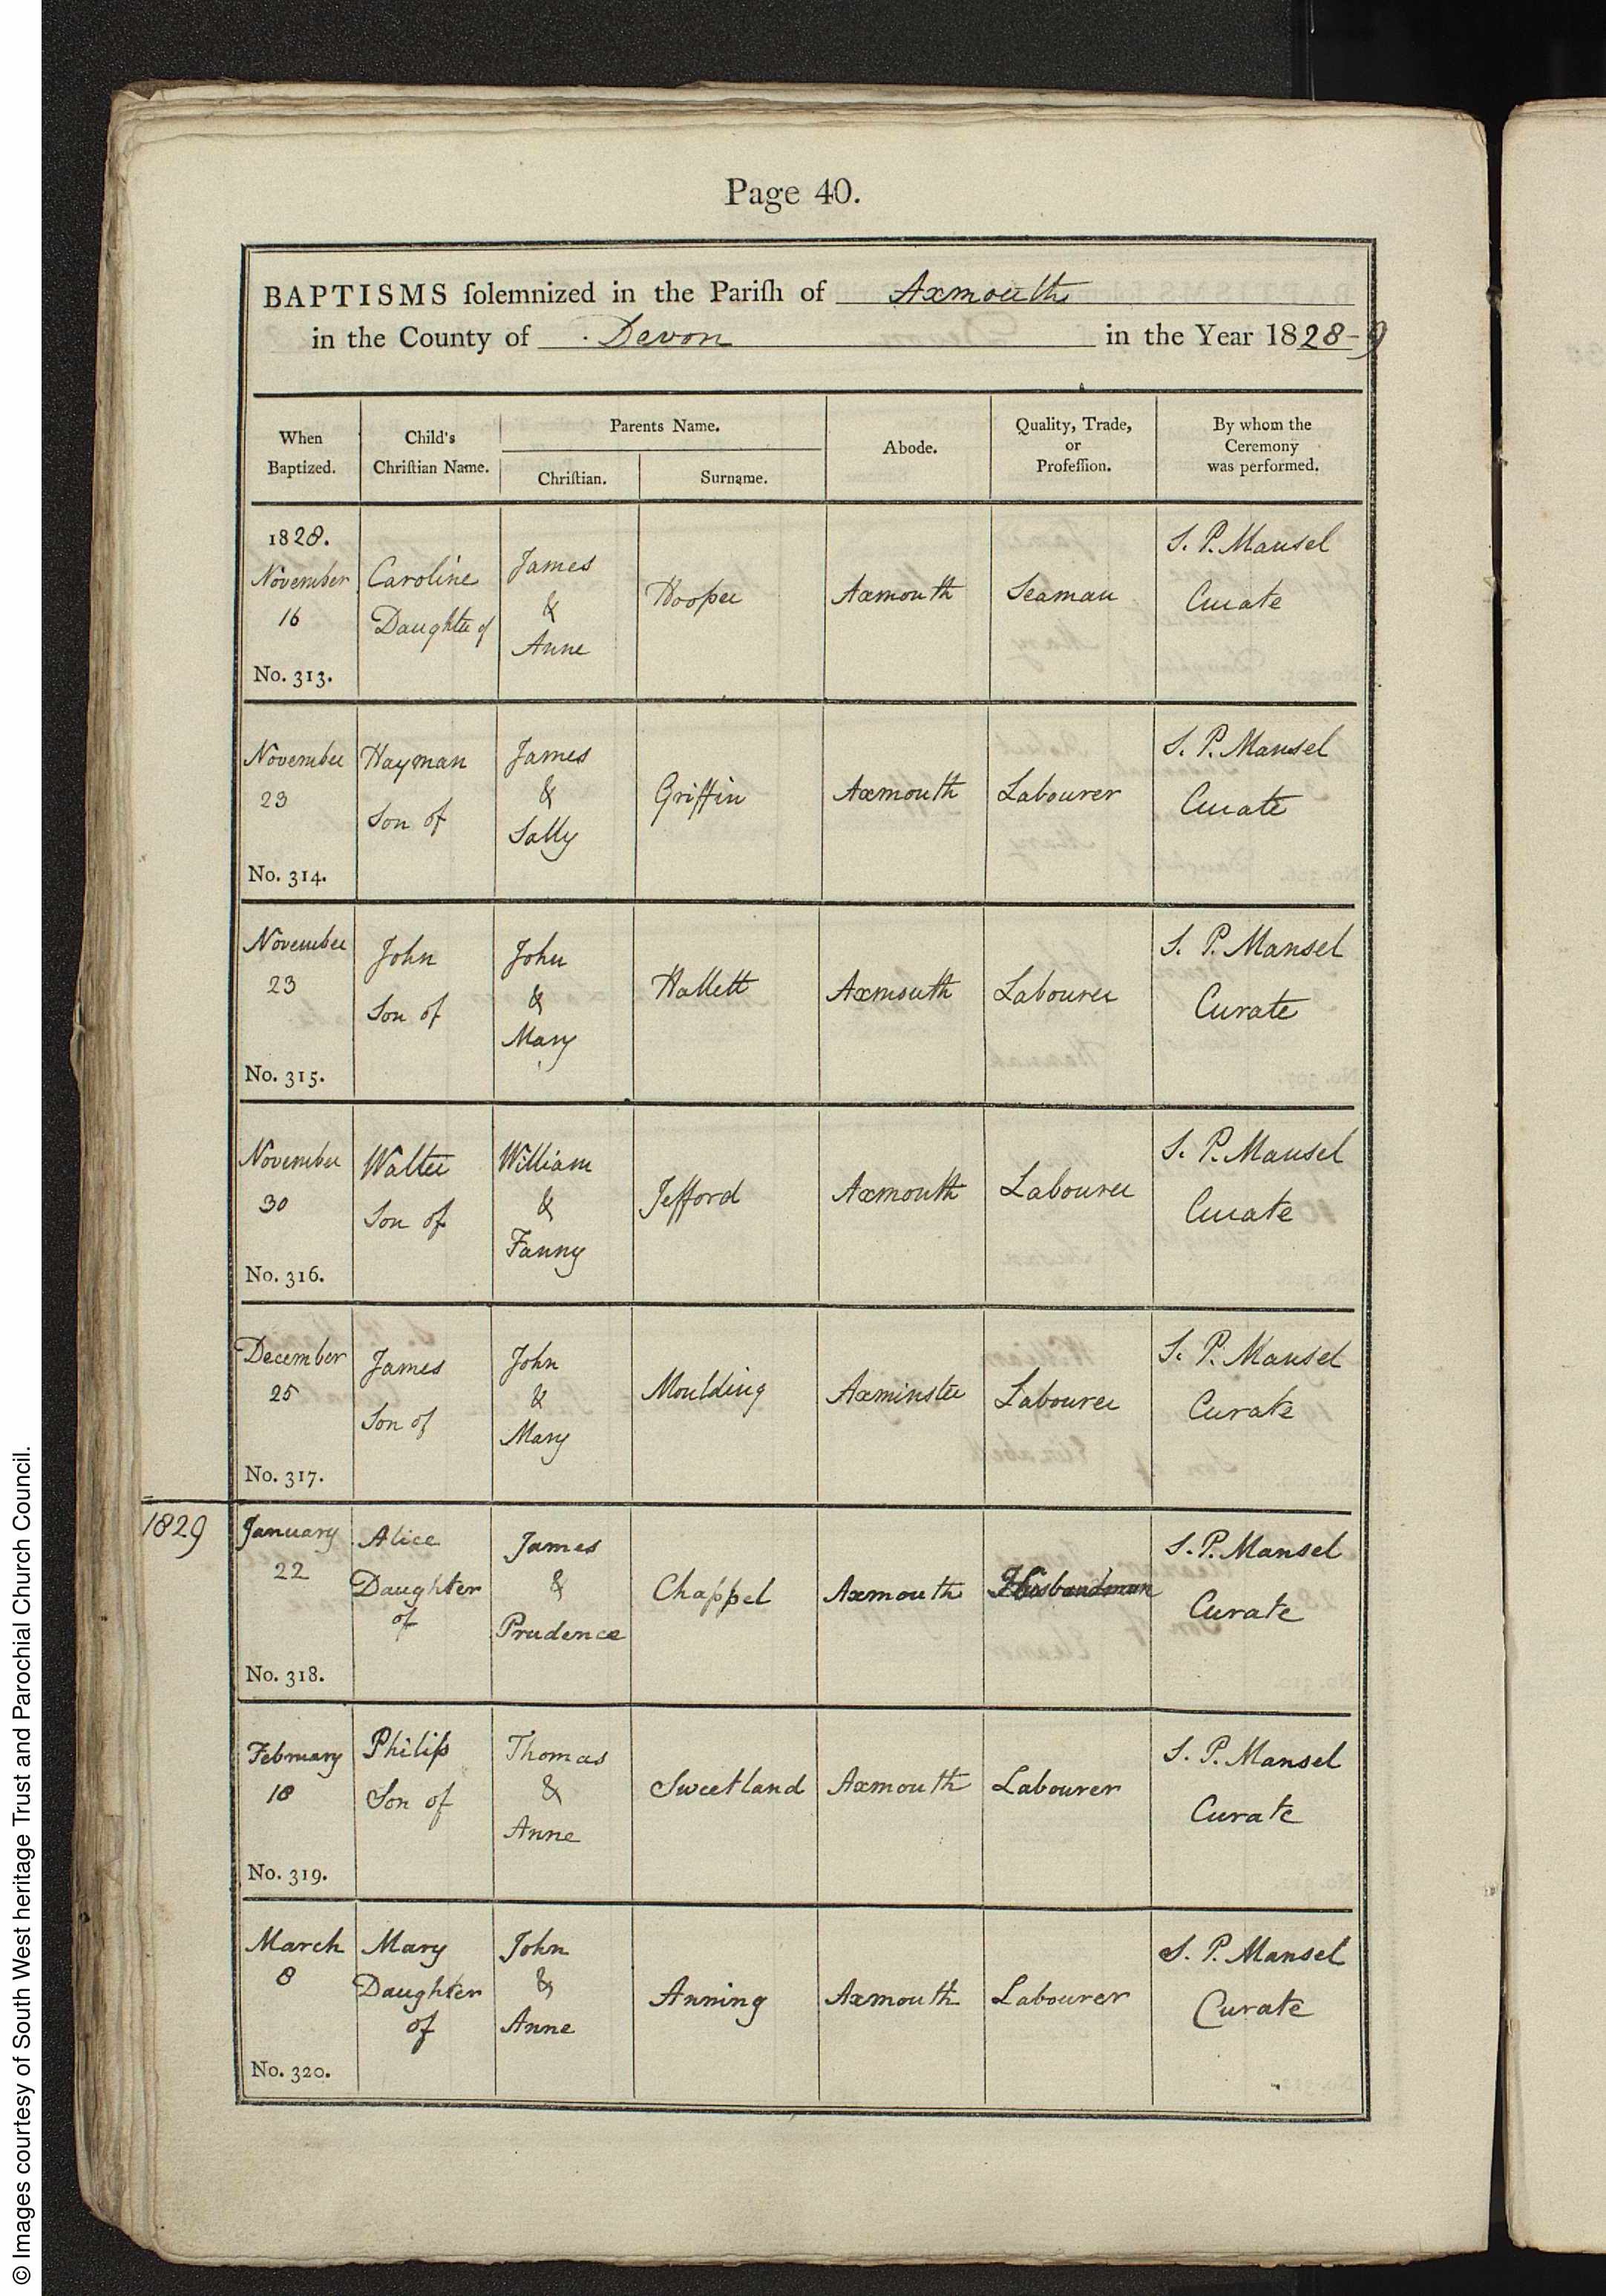 Page 40.
BAPTISMS ſolemnized in the Pariſh of Axmouth
in the County of Devon in the Year 1828-9
When
Baptized.
Child's
Chriſtian Name.
Parents Name.
Chriſtian.
Surname.
Abode.
Quality, Trade,
or
Profeſſion.
By whom the
Ceremony
was performed.
1828.
November
16
No. 313.
Caroline
Daughter of
James
&
Anne
Hooper
Axmouth
Seaman
S. P. Mansel
Curate
November
23
No. 314.
Hayman
Son of
James
&
Sally
Griffin
Axmouth
Labourer
S. P. Mansel
Curate
November
23
No. 315.
John
Son of
John
&
Mary
Hallett
Axmouth
Labourer
S. P. Mansel
Curate
November
30
No. 316.
Walter
Son of
William
&
Fanny
Jefford
Axmouth
Labourer
S. P. Mansel
Curate
December
25
No. 317.
James
Son of
John
&
Mary
Moulding
Axminster
Labourer
S. P. Mansel
Curate
1829
January
22
No. 318.
Alice
Daughter
of
James
&
Prudence
Chappel
Axmouth
Husbandman
S. P. Mansel
Curate
February
18
No. 319.
Philip
Son of
Thomas
&
Anne
Sweetland
Axmouth
Labourer
S. P. Mansel
Curate
March
8
No. 320.
Mary
Daughter
of
John
&
Anne
Anning
Axmouth
Labourer
S. P. Mansel
Curate
© Images courtesy of South West heritage Trust and Parochial Church Council.